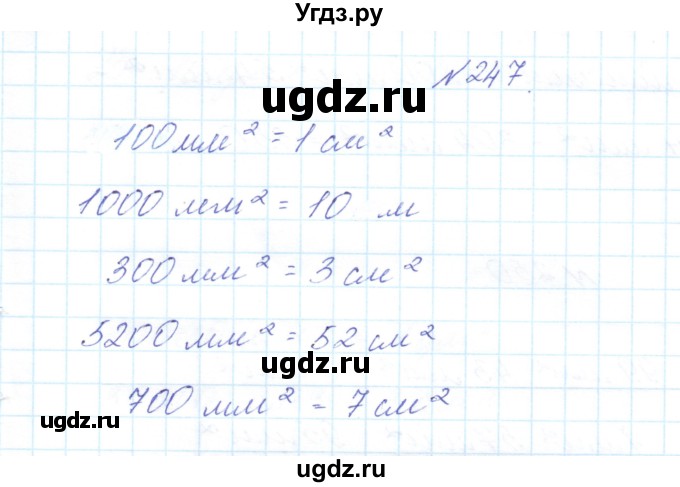 Угдз.ру
№247.
ugdz.ru
100 мм² = 1 см²
1000 мм² = 10 м
300 мм² = 3 см²
5200 мм² = 52 см²
ugdz.ru
700 мм² = 7 см²
ugdz.ru
ugdz.ru